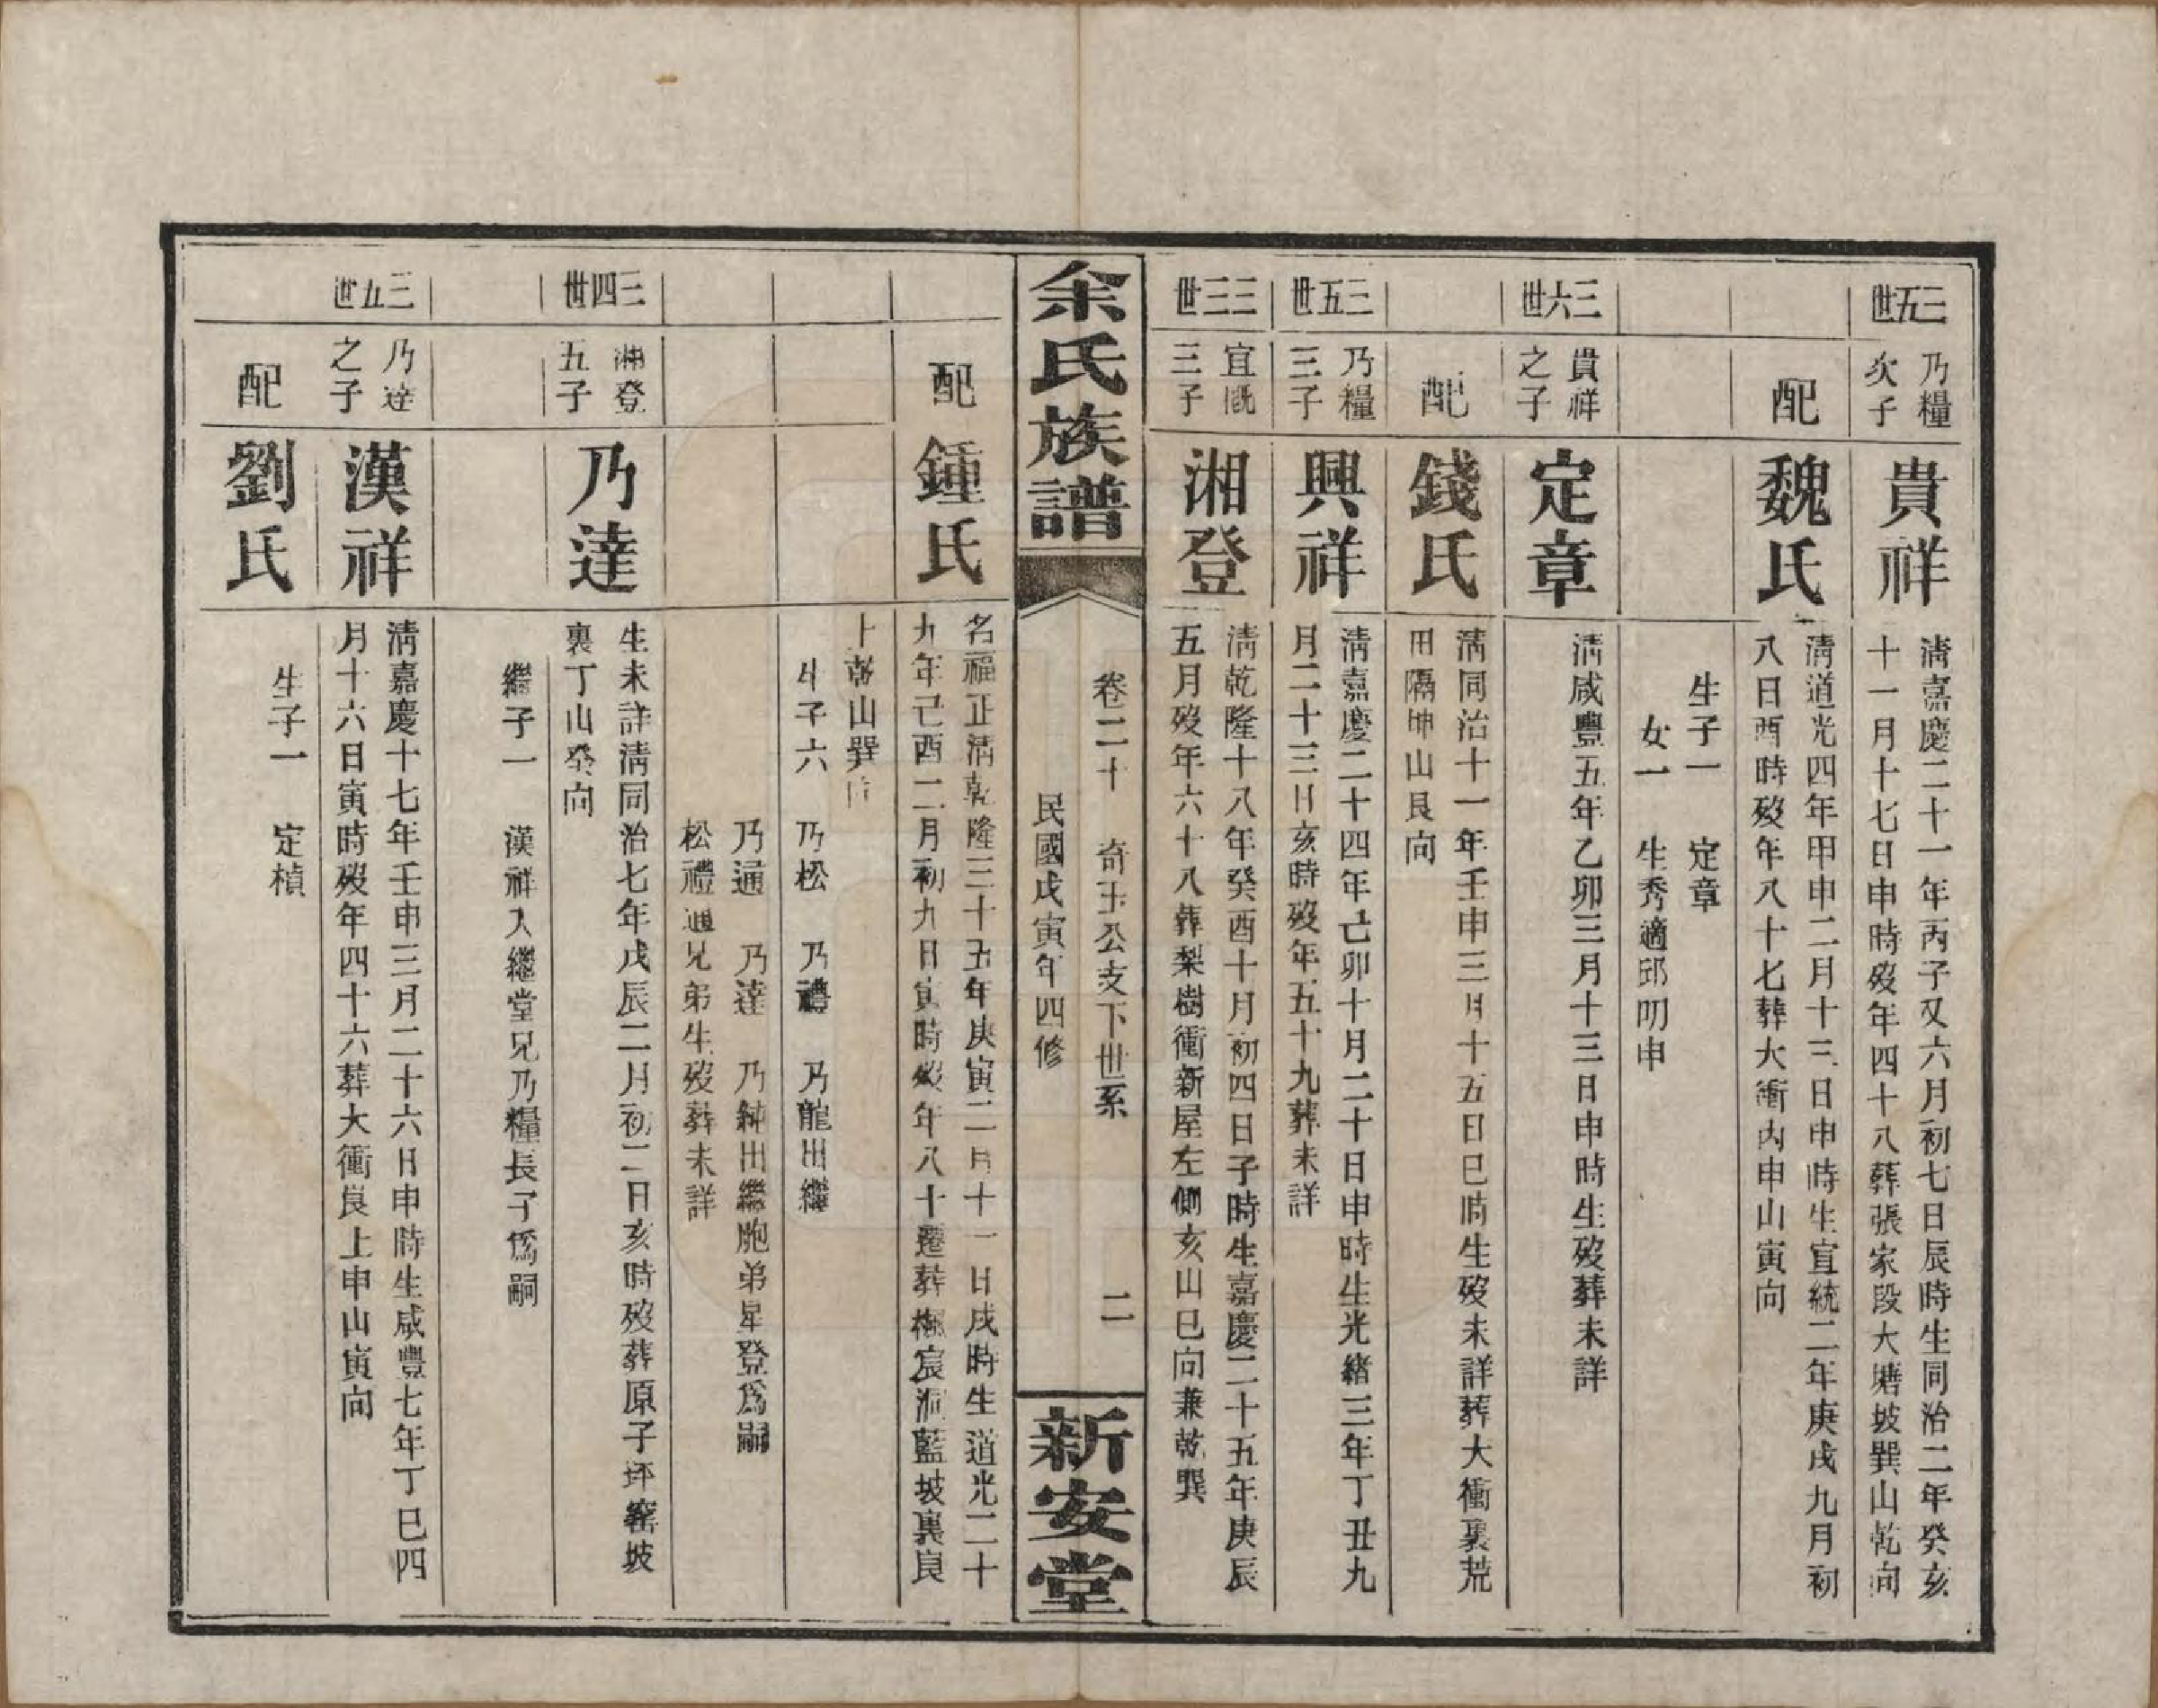 三五世
乃糧
次子
貴祥
清嘉慶二十一年丙子又六月初七日辰時生同治二年癸亥
十一月十七日申時歿年四十八葬張家段大塘坡巽山乾向
配
魏氏
清道光四年甲申二月十三日申時生宣統二年庚戌九月初
八日酉時歿年八十七葬大衝內申山寅向
生子一 定章
女一 生秀適邱明申
三六世
貴祥
之子
定章
清咸豐五年乙卯三月十三日申時生歿葬未詳
配
錢氏
清同治十一年壬申三月十五日巳時生歿未詳葬大衝裏荒
田隔坤山艮向
三五世
乃糧
三子
興祥
清嘉慶二十四年己卯十月二十日申時生光緒三年丁丑九
月二十三日亥時歿年五十九葬未詳
三三世
宜旣
三子
湘登
清乾隆十八年癸酉十月初四日子時生嘉慶二十五年庚辰
五月歿年六十八葬梨樹衝新屋左側亥山巳向兼乾巽
余氏族譜
卷二十 奇玉公支下世系 二
民國戊寅年四修
新安堂
配
鍾氏
名福正清乾隆三十五年庚寅二月十一日戌時生道光二十
九年己酉二月初九日寅時歿年八十遷葬楓宸洞藍坡裏良
上乾山巽向
生子六 乃松 乃禮 乃龍出繼
乃通 乃達 乃純出繼胞弟星登爲嗣
松禮通兄弟生歿葬未詳
三四世
湘登
五子
乃達
生未詳清同治七年戊辰二月初二日亥時歿葬原子坪窰坡
裏丁山癸向
繼子一 漢祥入繼堂兄乃糧長子爲嗣
三五世
乃達
之子
漢祥
清嘉慶十七年壬申三月二十六日申時生咸豐七年丁巳四
月十六日寅時歿年四十六葬大衝良上申山寅向
配
劉氏
生子一 定楨